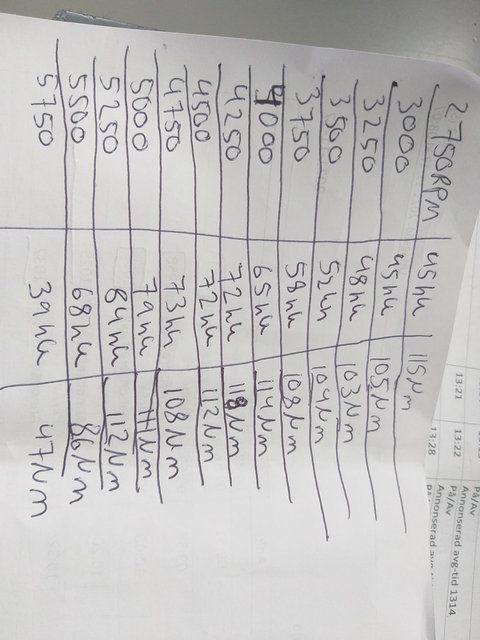 2750RPM 45hk 115Nm
3000 45hk 105Nm
3250 48hk 103Nm
3500 52hk 104Nm
3750 58hk 108Nm
4000 65hk 114Nm
4250 72hk 118Nm
4500 72hk 112Nm
4750 73hk 108Nm
5000 79hk 111Nm
5250 84hk 112Nm
5500 68hk 86Nm
5750 39hk 47Nm
13:21 13:22
13:28
På/Av
Annonserad avg-tid 1314
På/Av